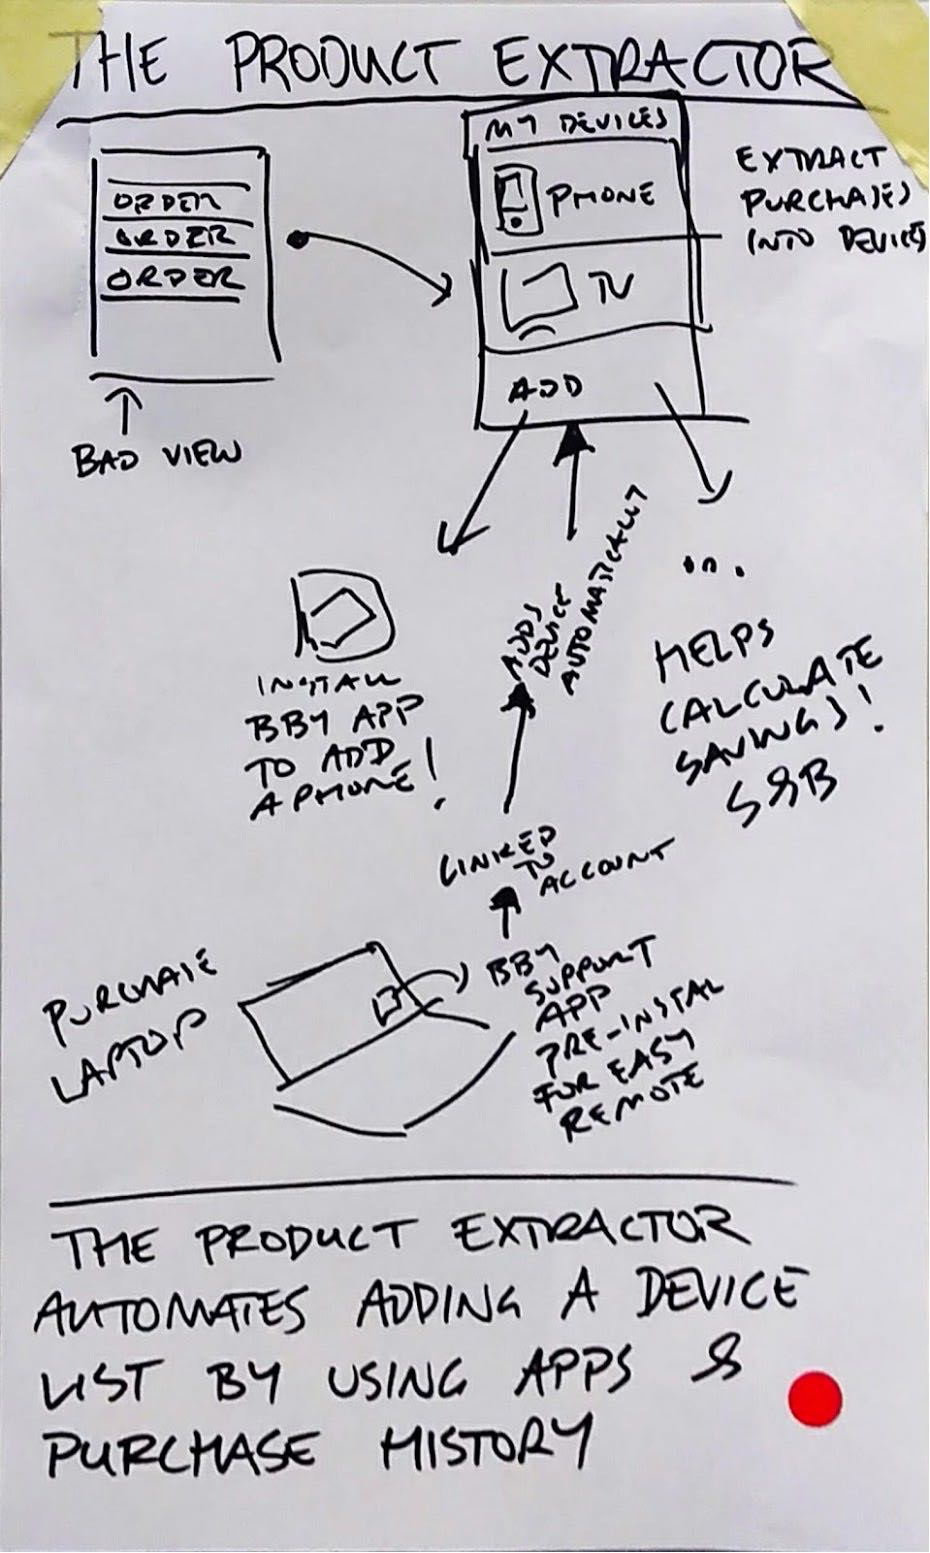 THE PRODUCT EXTRACTOR
ORDER
ORDER
ORDER
BAD VIEW
MY DEVICES
PHONE
TV
ADD
EXTRACT
PURCHASES
INTO DEVICES
INSTALL
BBY APP
TO ADD
A PHONE!
ADDS
DEVICE
AUTOMATICALLY
...
HELPS
CALCULATE
SAVINGS!
LINKED
TO
ACCOUNT
PURCHASE
LAPTOP
BBY
SUPPORT
APP
PRE-INSTAL
FOR EASY
REMOTE
THE PRODUCT EXTRACTOR
AUTOMATES ADDING A DEVICE
LIST BY USING APPS &
PURCHASE HISTORY